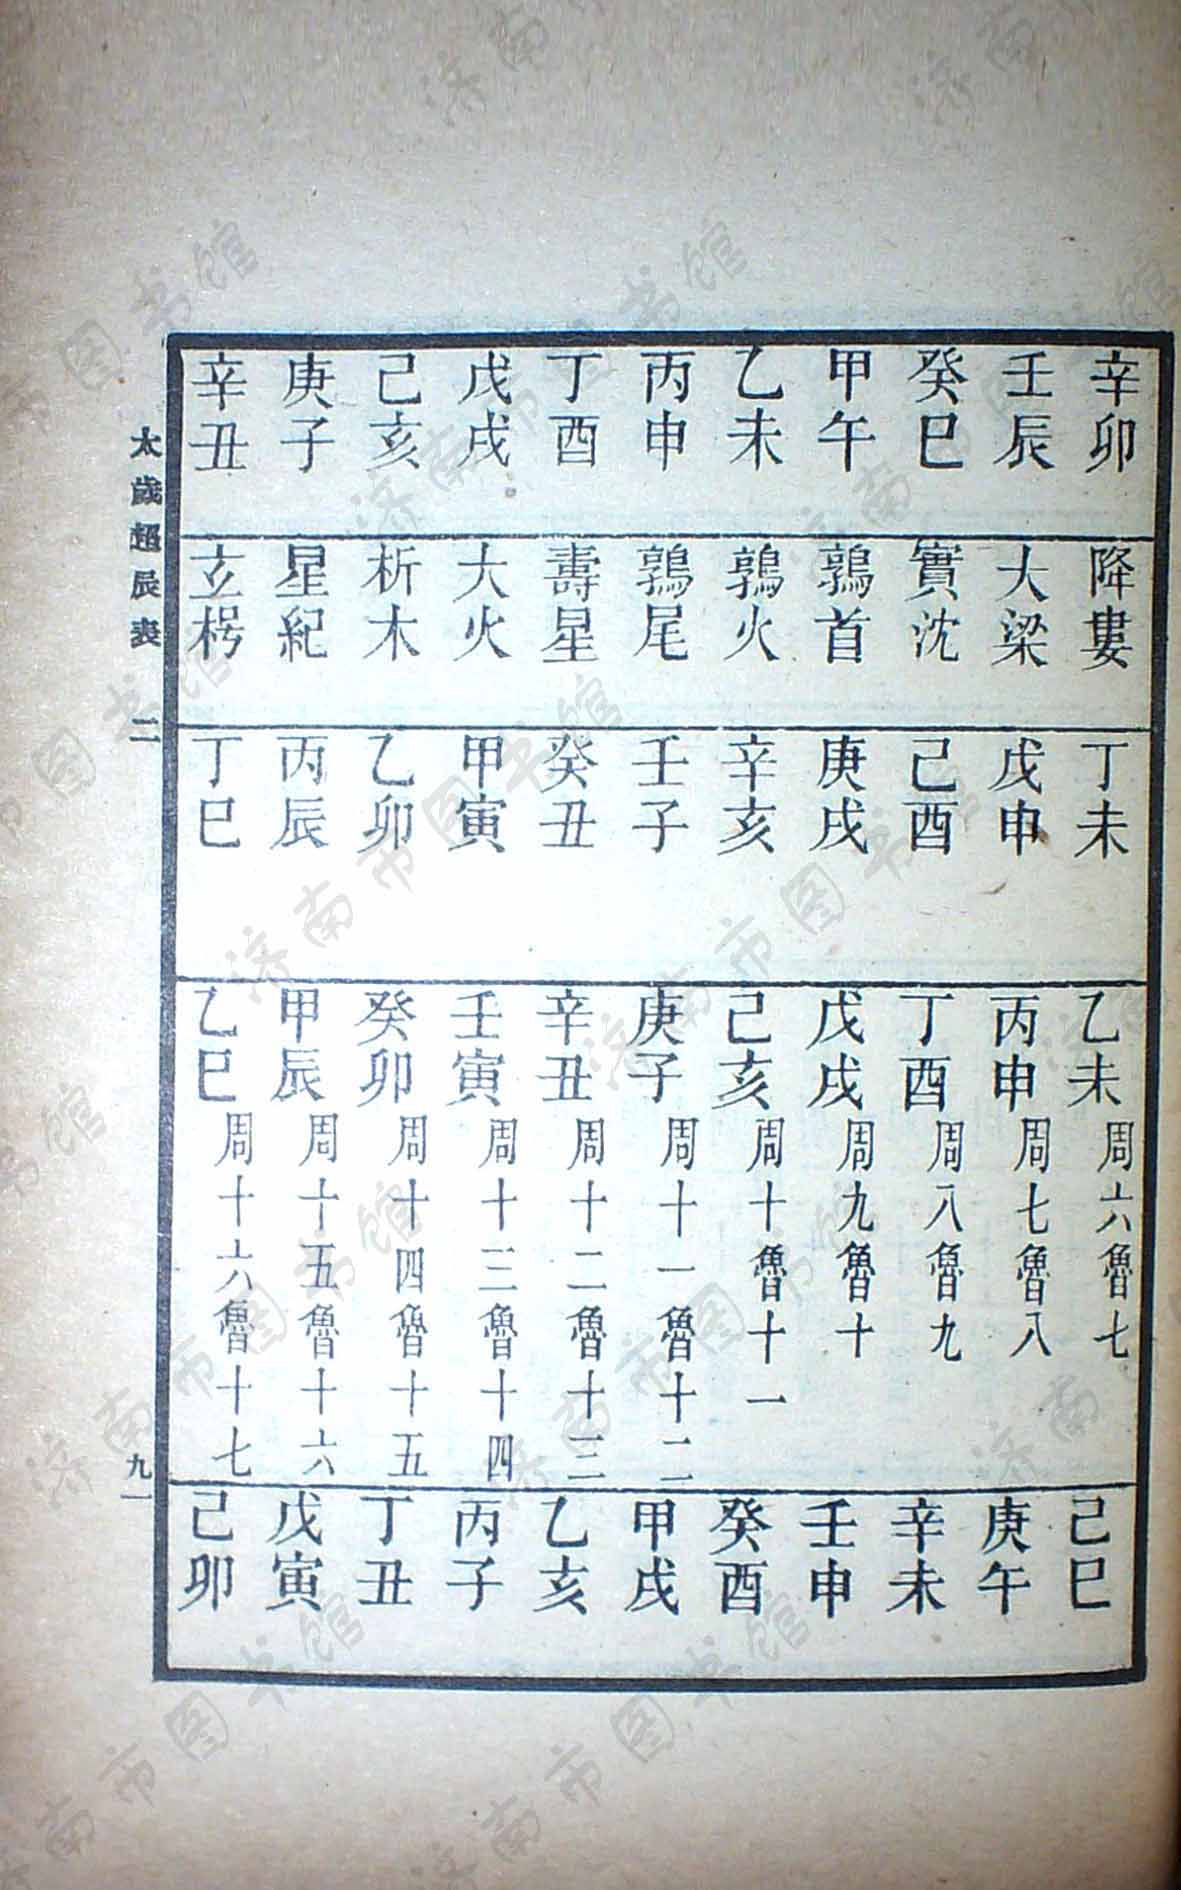 辛卯 降婁 丁未 乙未周六魯七 己巳
壬辰 大梁 戊申 丙申周七魯八 庚午
癸巳 實沈 己酉 丁酉周八魯九 辛未
甲午 鶉首 庚戌 戊戌周九魯十 壬申
乙未 鶉火 辛亥 己亥周十魯十一 癸酉
丙申 鶉尾 壬子 庚子周十一魯十二 甲戌
丁酉 壽星 癸丑 辛丑周十二魯十三 乙亥
戊戌 大火 甲寅 壬寅周十三魯十四 丙子
己亥 析木 乙卯 癸卯周十四魯十五 丁丑
庚子 星紀 丙辰 甲辰周十五魯十六 戊寅
辛丑 玄枵 丁巳 乙巳周十六魯十七 己卯
太歲超辰表 二 九一
济南市图书馆